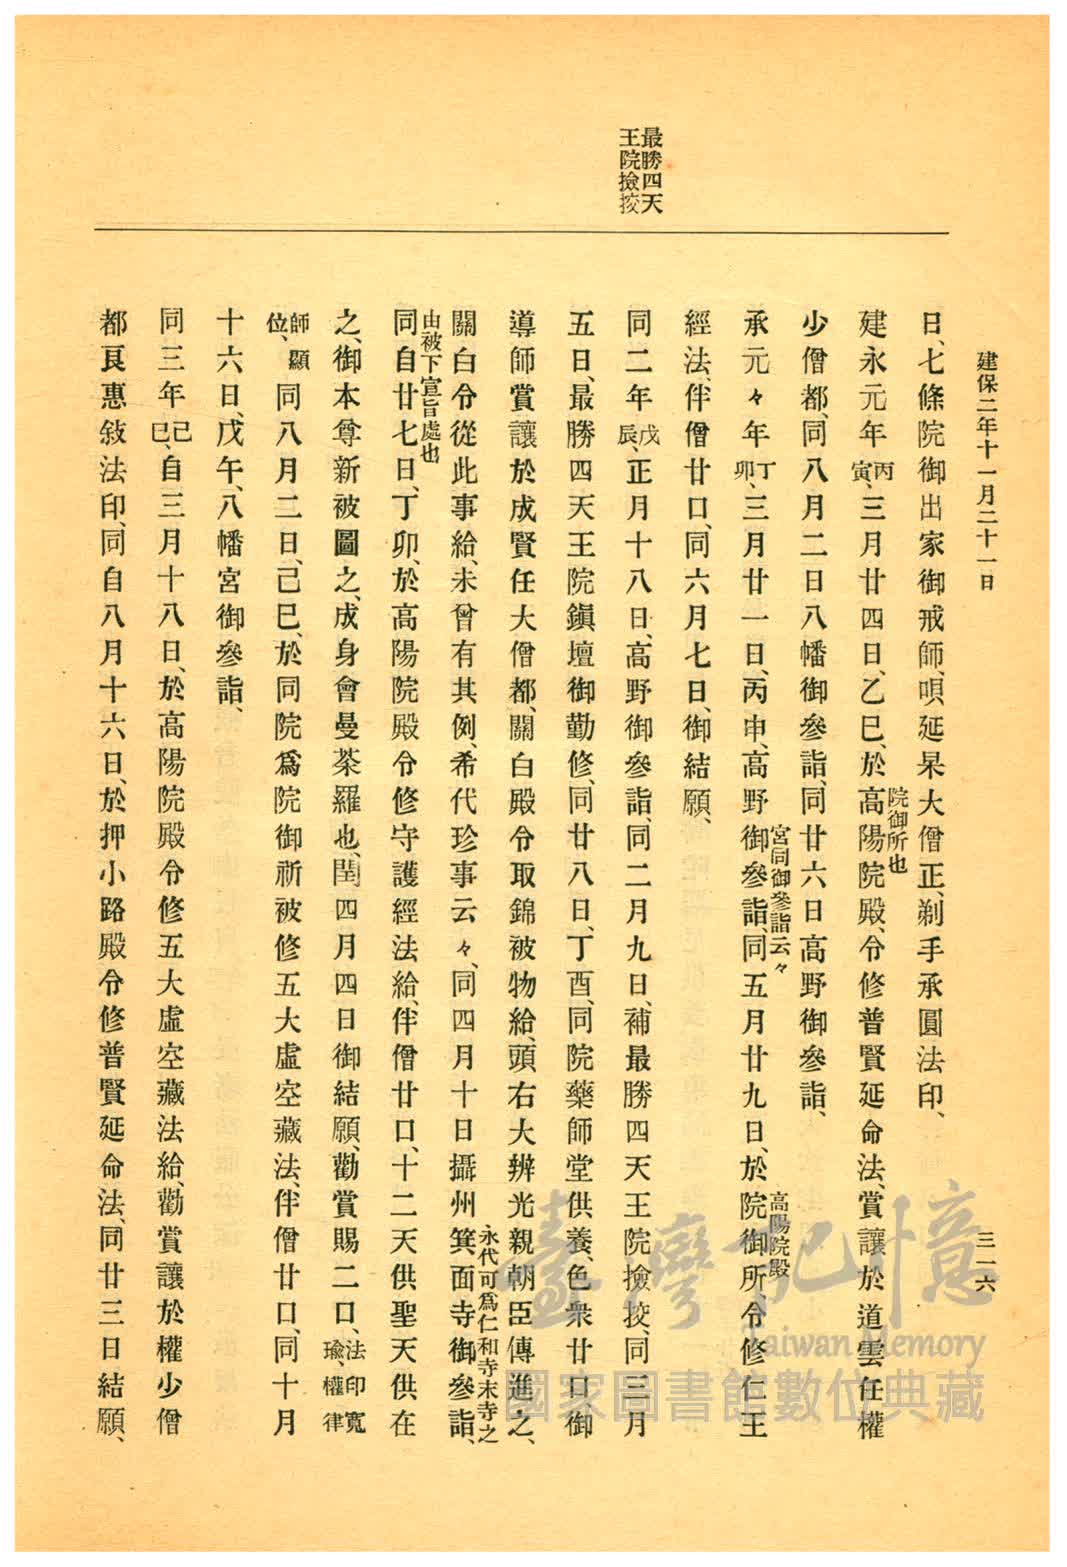 建保二年十一月二十一日
三一六
最勝四天
王院撿挍
日、七條院御出家御戒師、唄延杲大僧正、剃手承圓法印、
建永元年丙寅、三月廿四日、乙巳、於高陽院殿、令修普賢延命法、賞讓於道雲任權
院御所也
少僧都、同八月二日八幡御參詣、同廿六日高野御參詣、
承元々年丁卯、三月廿一日、丙申、高野御參詣、同五月廿九日、於院御所、令修仁王
宮同御參詣云々
高陽院殿
經法、伴僧廿口、同六月七日、御結願、
同二年戊辰、正月十八日、高野御參詣、同二月九日、補最勝四天王院撿挍、同三月
五日、最勝四天王院鎭壇御勤修、同廿八日、丁酉、同院藥師堂供養、色衆廿口御
導師賞讓於成賢任大僧都、關白殿令取錦被物給、頭右大辨光親朝臣傳進之、
關白令從此事給、未曾有其例、希代珍事云々、同四月十日攝州箕面寺御參詣、
永代可爲仁和寺末寺之
由被下宣旨處也
同自廿七日、丁卯、於高陽院殿令修守護經法給、伴僧廿口、十二天供聖天供在
之、御本尊新被圖之、成身會曼荼羅也、閏四月四日御結願、勸賞賜二口、法印寬瑜、權律
師顯位、同八月二日、己巳、於同院爲院御祈被修五大虛空藏法、伴僧廿口、同十月
十六日、戊午、八幡宮御參詣、
同三年己巳、自三月十八日、於高陽院殿令修五大虛空藏法給、勸賞讓於權少僧
都良惠敍法印、同自八月十六日、於押小路殿令修普賢延命法、同廿三日結願、
臺灣記憶
Taiwan Memory
國家圖書館數位典藏